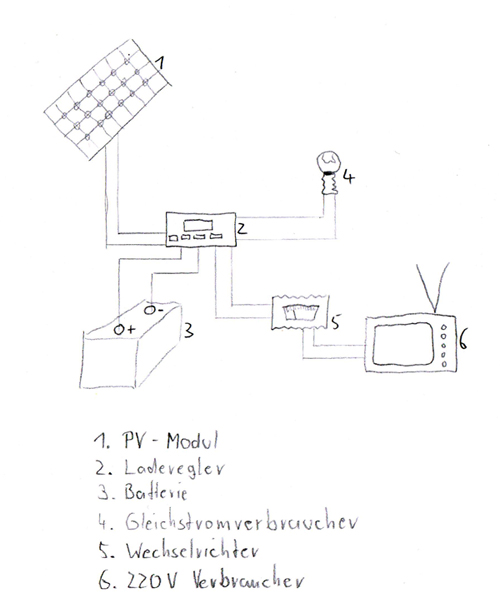 1
2
4
3
5
6
+
-
1. PV-Modul
2. Laderegler
3. Batterie
4. Gleichstromverbraucher
5. Wechselrichter
6. 220V Verbraucher